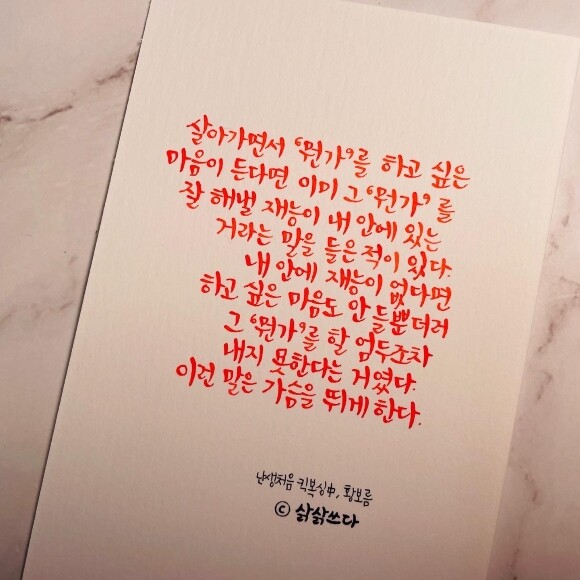 살아가면서 '뭔가'를 하고 싶은
마음이 든다면 이미 그 '뭔가'를
잘 해낼 재능이 내 안에 있는
거라는 말을 들은 적이 있다.
내 안에 재능이 없다면
하고 싶은 마음도 안 들뿐더러
그 '뭔가'를 할 엄두조차
내지 못한다는 거였다.
이런 말은 가슴을 뛰게 한다.
난생처음 킥복싱中, 황보름
ⓒ 삵삵쓰다